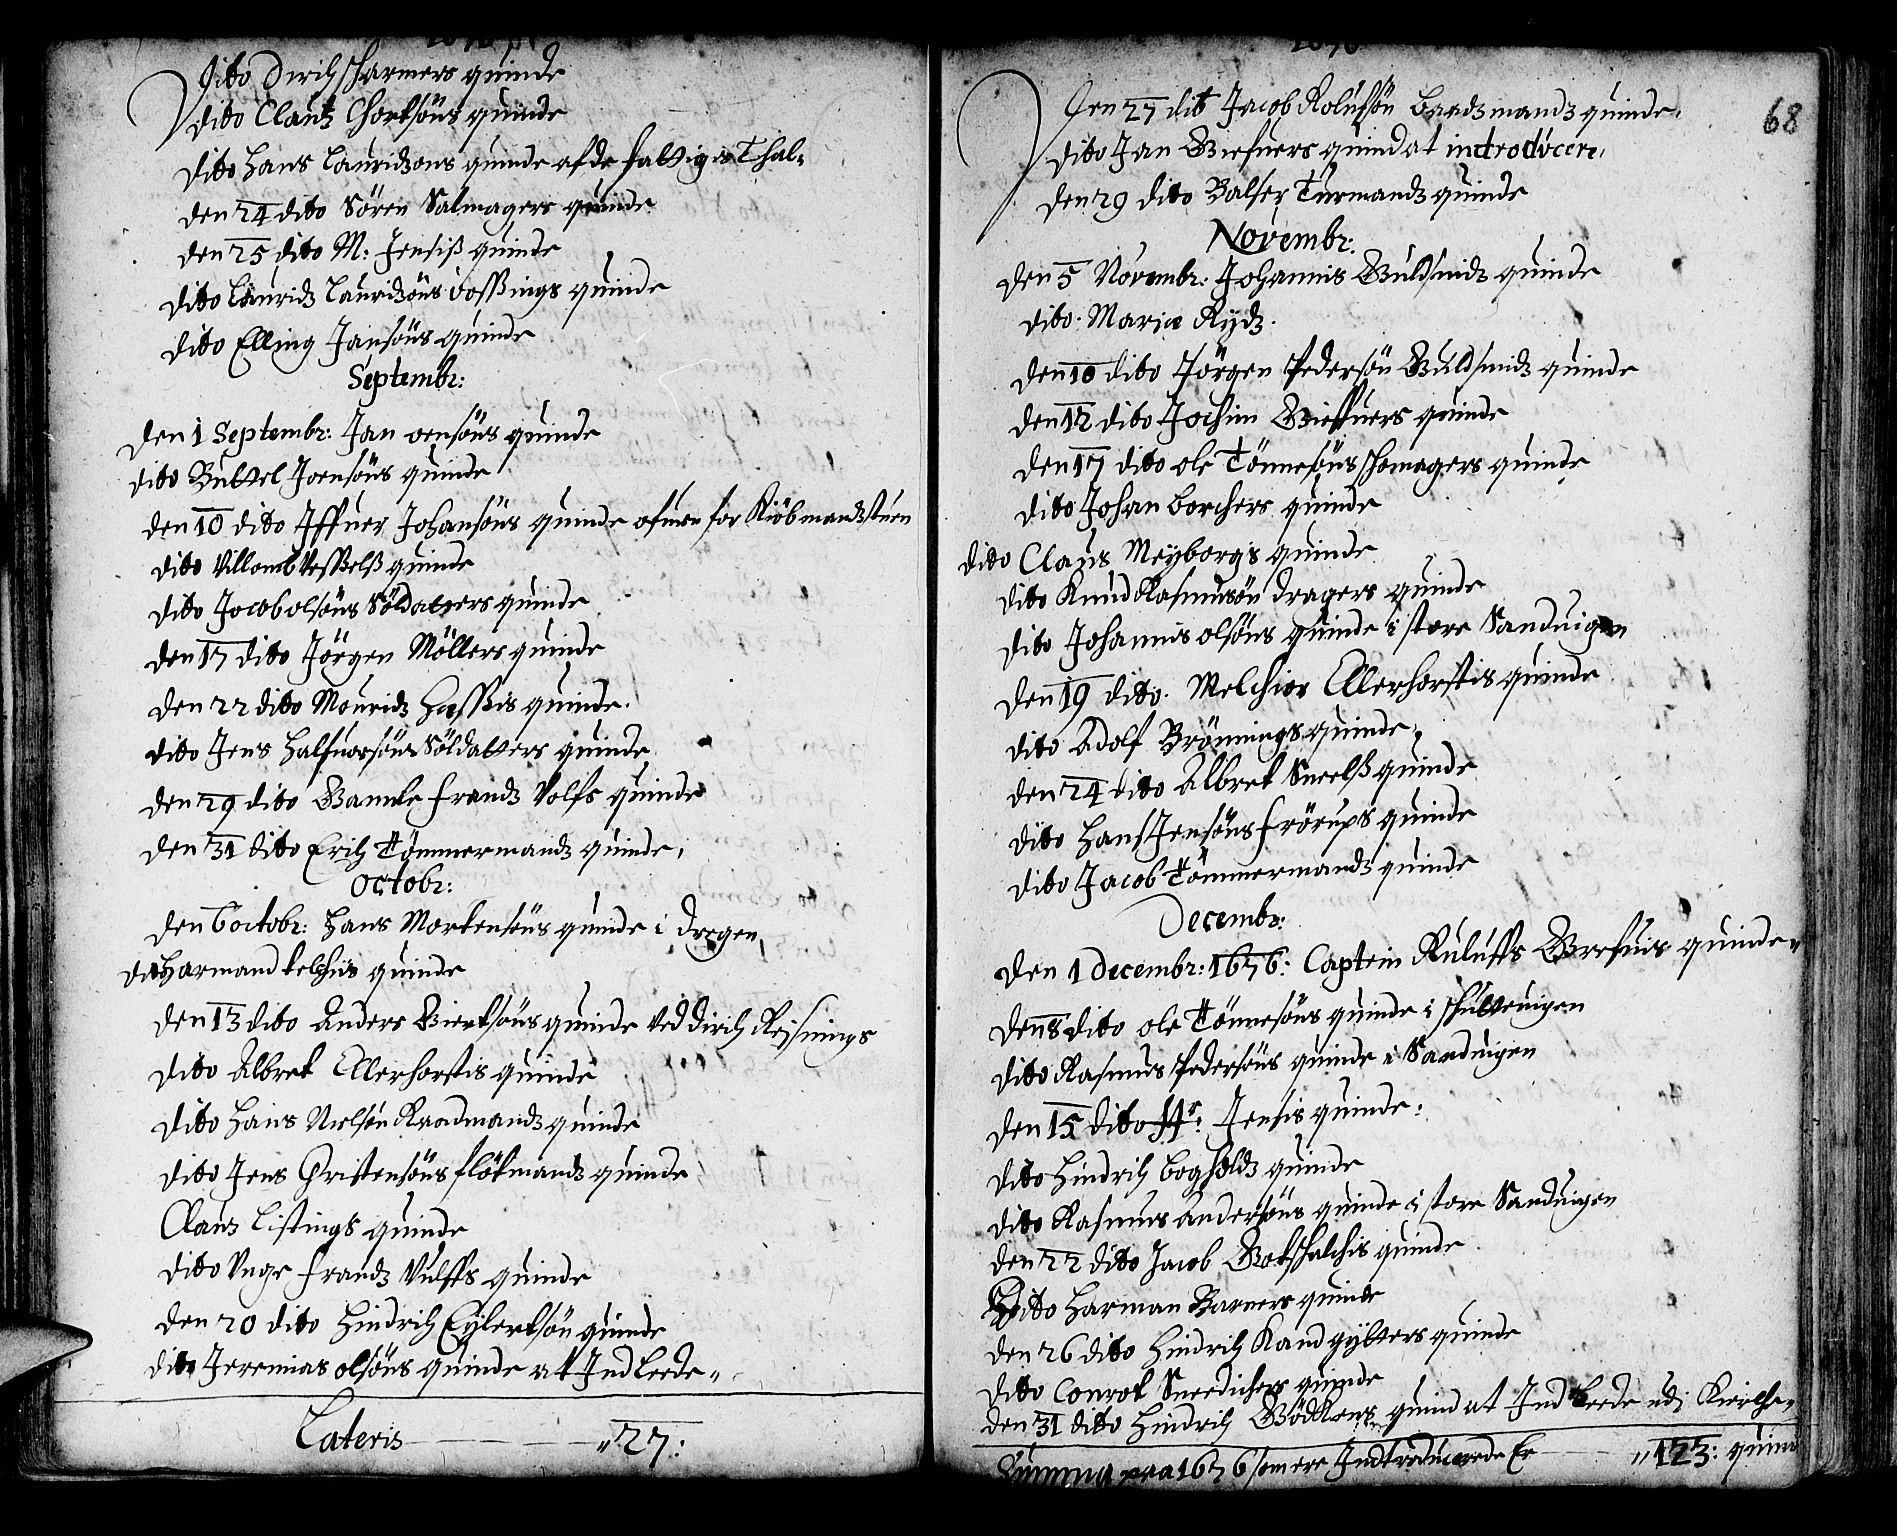 Dito Dirich Harmers quinde
Dito Clautz Chortsöns quinde
Dito Hans Lauridzons quinde af de fattiges Thal-
den 24 dito Sören Salmagers quinde
den 25 dito M: Jensiß quinde
Dito Lauridz Lauridzöns quinde
Dito Elling Jansöns quinde
Septembr:
Den 1 Septembr: Jan oensöns quinde
dito Buttel Joensöns quinde
den 10 dito Iffuer Johansöns quinde ofuen for Kiöbmandzstuen
dito Villomb Vesselß quinde
dito Jocob olsöns Söldatters quinde
den 17 dito Jörgen Möllers quinde
den 22 dito Mouridz Hassis quinde.
dito Jens Halfuorsöns Söldatters quinde
den 29 dito Gamle Frandz Volfs quinde
den 31 dito Erich Tömmermandz quinde,
Octobr:
Den 6 octobr: Hans Mortensöns quinde i Dregen,
dit Harmand quinde
Den 13 dito Anders quinde ved Dirich Reysnings
Dito Albret Ellerhorstis quinde
Dito Hans Nielsön Raadmandz quinde
dito Jens Christensöns flötmandz quinde
Clauz Listings quinde
dito Unge Frandz Vulffs quinde
Den 20 dito Hindrich Eylertsön quinde
dito Jeremias olsöns quinde at Ind Leede
Lateris 27:
68
Den 27 dit Jacob Rolufsön Baadzmandz quinde.
dito Jan Giefuers quind at introducere,
den 29 dito Balser Turmandz quinde
Novembr:
Den 5 Novembr: Johannis Guldsmidz quinde
dito. Marie Rydz.
den 10 dito Jörgen Pedersön Guldsmidz quinde
den 12 dito Jochim Gieffuers quinde
den 17 dito ole Tönnesöns schomagers quinde
dito Johan Borchers quinde
dito Claus Meyborgs quinde
dito Knud Rasmusön dragers quinde
dito Johannis olsöns quinde i store Sanduigen
den 19 dito. Melchior Ellerhorstis quinde
dito Adolf Brönnings quinde,
den 24 dito Albret Sneelß quinde
dito Hans Jensöns Frörups quinde
dito Jacob Tömmermandz quinde
Decembr:
Den 1 decembr: 1676: Captein Ruluffs quinde
den 8 dito ole Tönnesöns quinde i schutteuigen
dito Rasmus Pedersöns quinde i Sanduigen
den 15 dito Hr: Jensis quinde:
dito Hindrich Bogholdz quinde
dito Rasmus Andersöns quinde i store Sanduigen
den 22 dito Jacob Gotschalchis quinde
Dito Harman Garners quinde
den 26 dito Hindrich Kandgytters quinde
dito Conrot quinde
den 31 dito Hindrich Bödkers quind at Ind Leede udj Kierche
Summa paa 1676 som ere Indtroducerede Er 123: quind